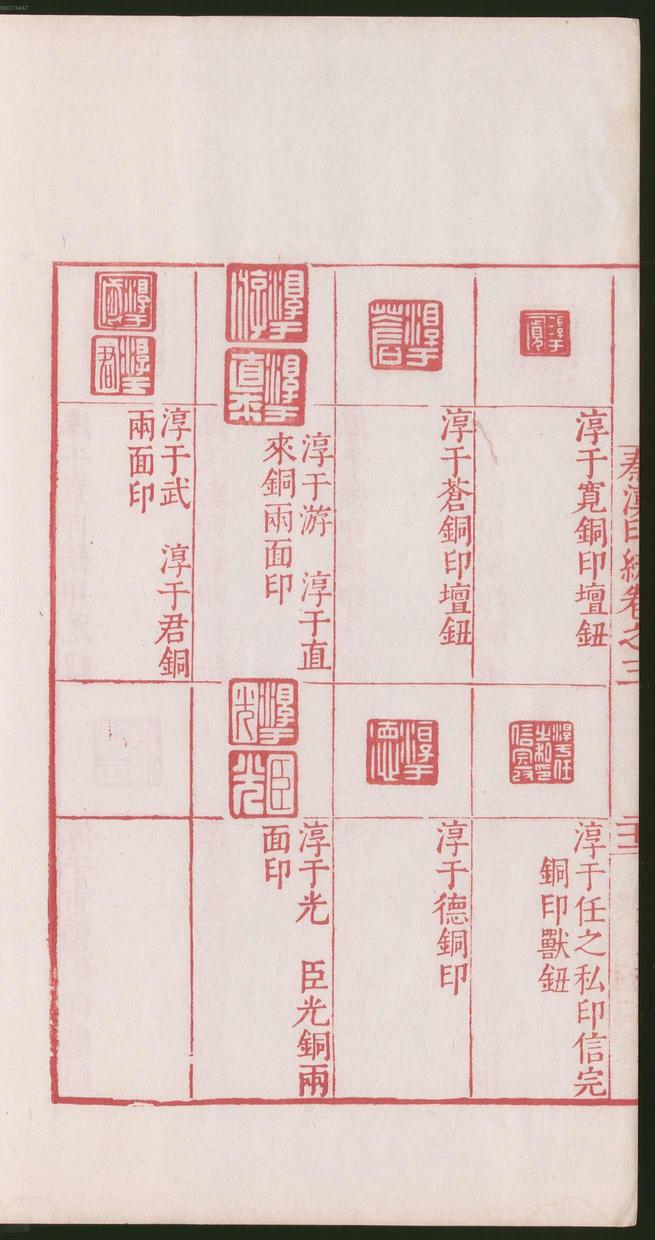 00073467
秦漢印統卷之三
淳于寬銅印壇鈕
淳于蒼銅印壇鈕
淳于游　淳于直
來銅兩面印
淳于武　淳于君銅
兩面印
淳于任之私印信完
銅印獸鈕
淳于德銅印
淳于光　臣光銅兩
面印